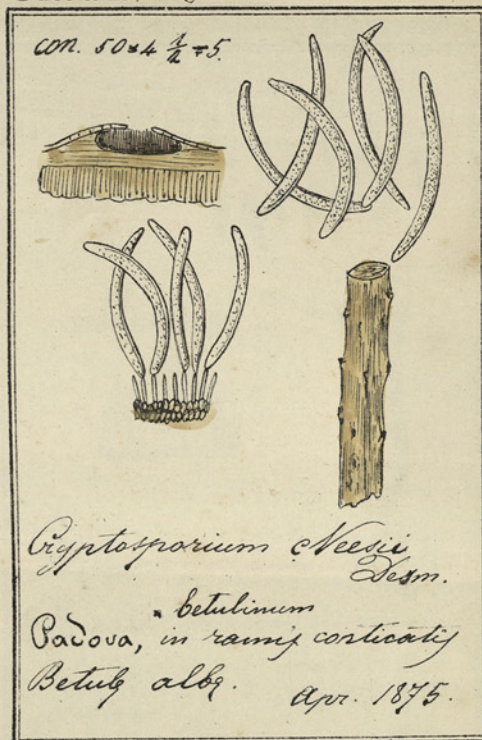 con. 50*4 1/2 = 5.
Cryptosporium Neesii
Desm.
* betulinum
Padova, in ramis corticatis
Betulę albę.
Apr. 1875.